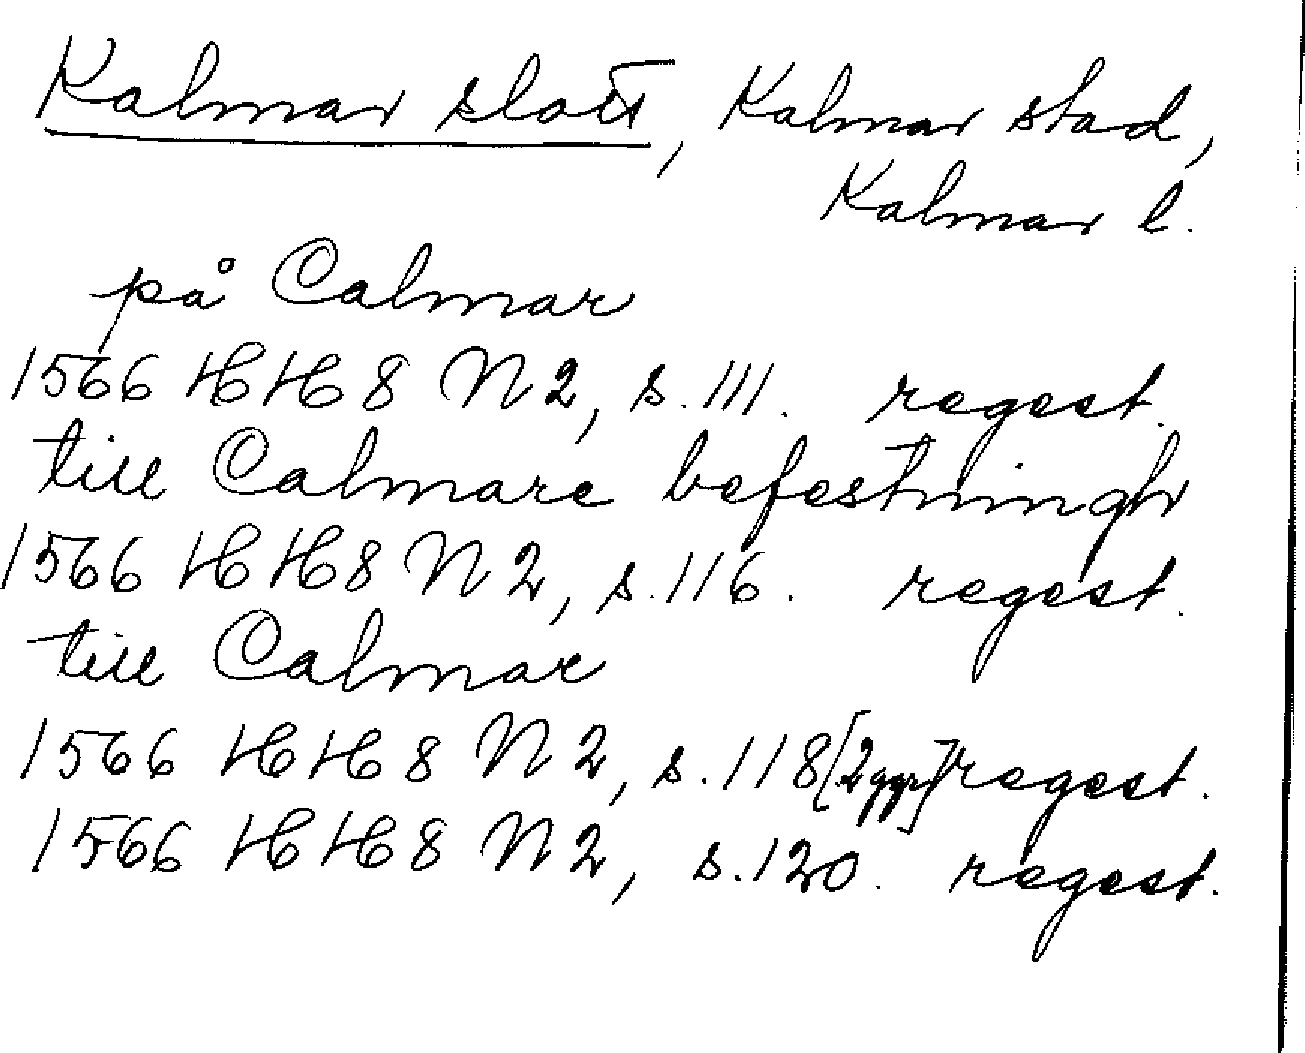 Kalmar slott, Kalmar stad,
Kalmar l.
på Calmar
1566 HH8 N2, s.111. regest.
till Calmare befestningh
1566 HH8 N2, s.116. regest.
till Calmar
1566 HH8 N2, s.118 [2ggr] regest.
1566 HH8 N2, s.120. regest.